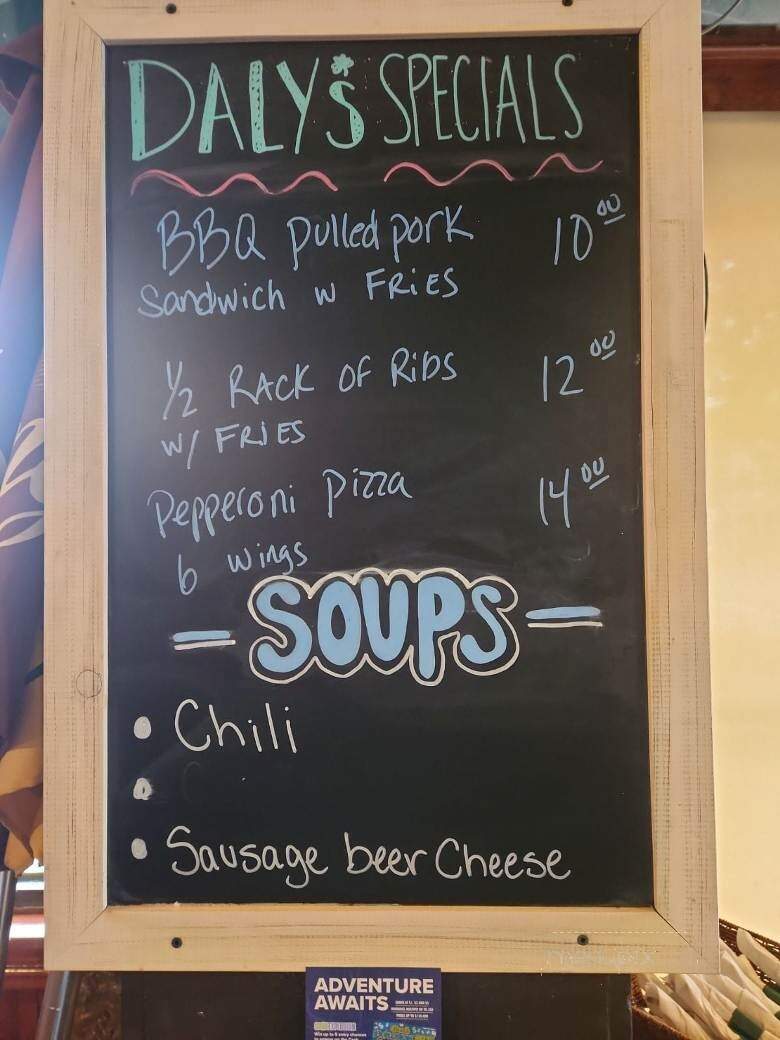 DALY'S SPECIALS
BBQ Pulled pork 10.00
Sandwich w FRiES
1/2 RACK OF RiBS 12.00
W/ FRIES
Pepperoni Pizza 14.00
6 wings
SOUPS
• Chili
•
• Sausage beer Cheese
ADVENTURE
AWAITS